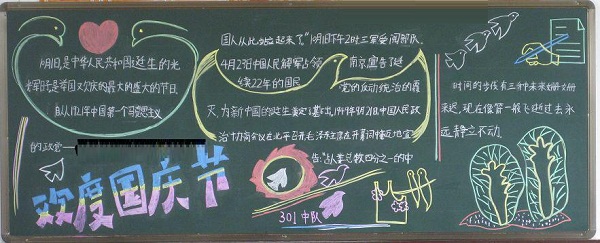 10月1日,是中华人民共和国诞生的光
荣节日是举国又欢庆的最大的盛大的节日.
自从1921年中国第一个马克思主义
的政党一
国人从此站立起来了。"10月1日下午2时三军受阅部队.
4月23日中国人民解放军占领 南京宣告延
续22年的国民 党的反动统治的覆
灭,为新中国的诞生奠定了基础,1949年9月21日,中国人民政
治协商会议在北平召开,毛泽东主席在开幕词慷慨地宣
告:"占人类总数四分之一的中
时间的步伐有三种未来姗姗
来迟,现在像箭一般飞逝过去永
远静立不动
欢度国庆节
301中队